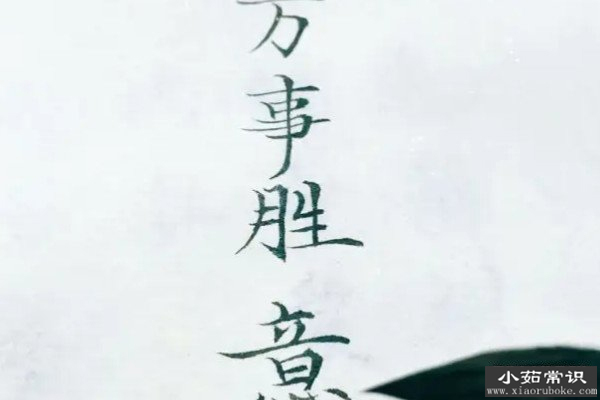 万事胜意
小茹常识
www.xiaoruboke.com